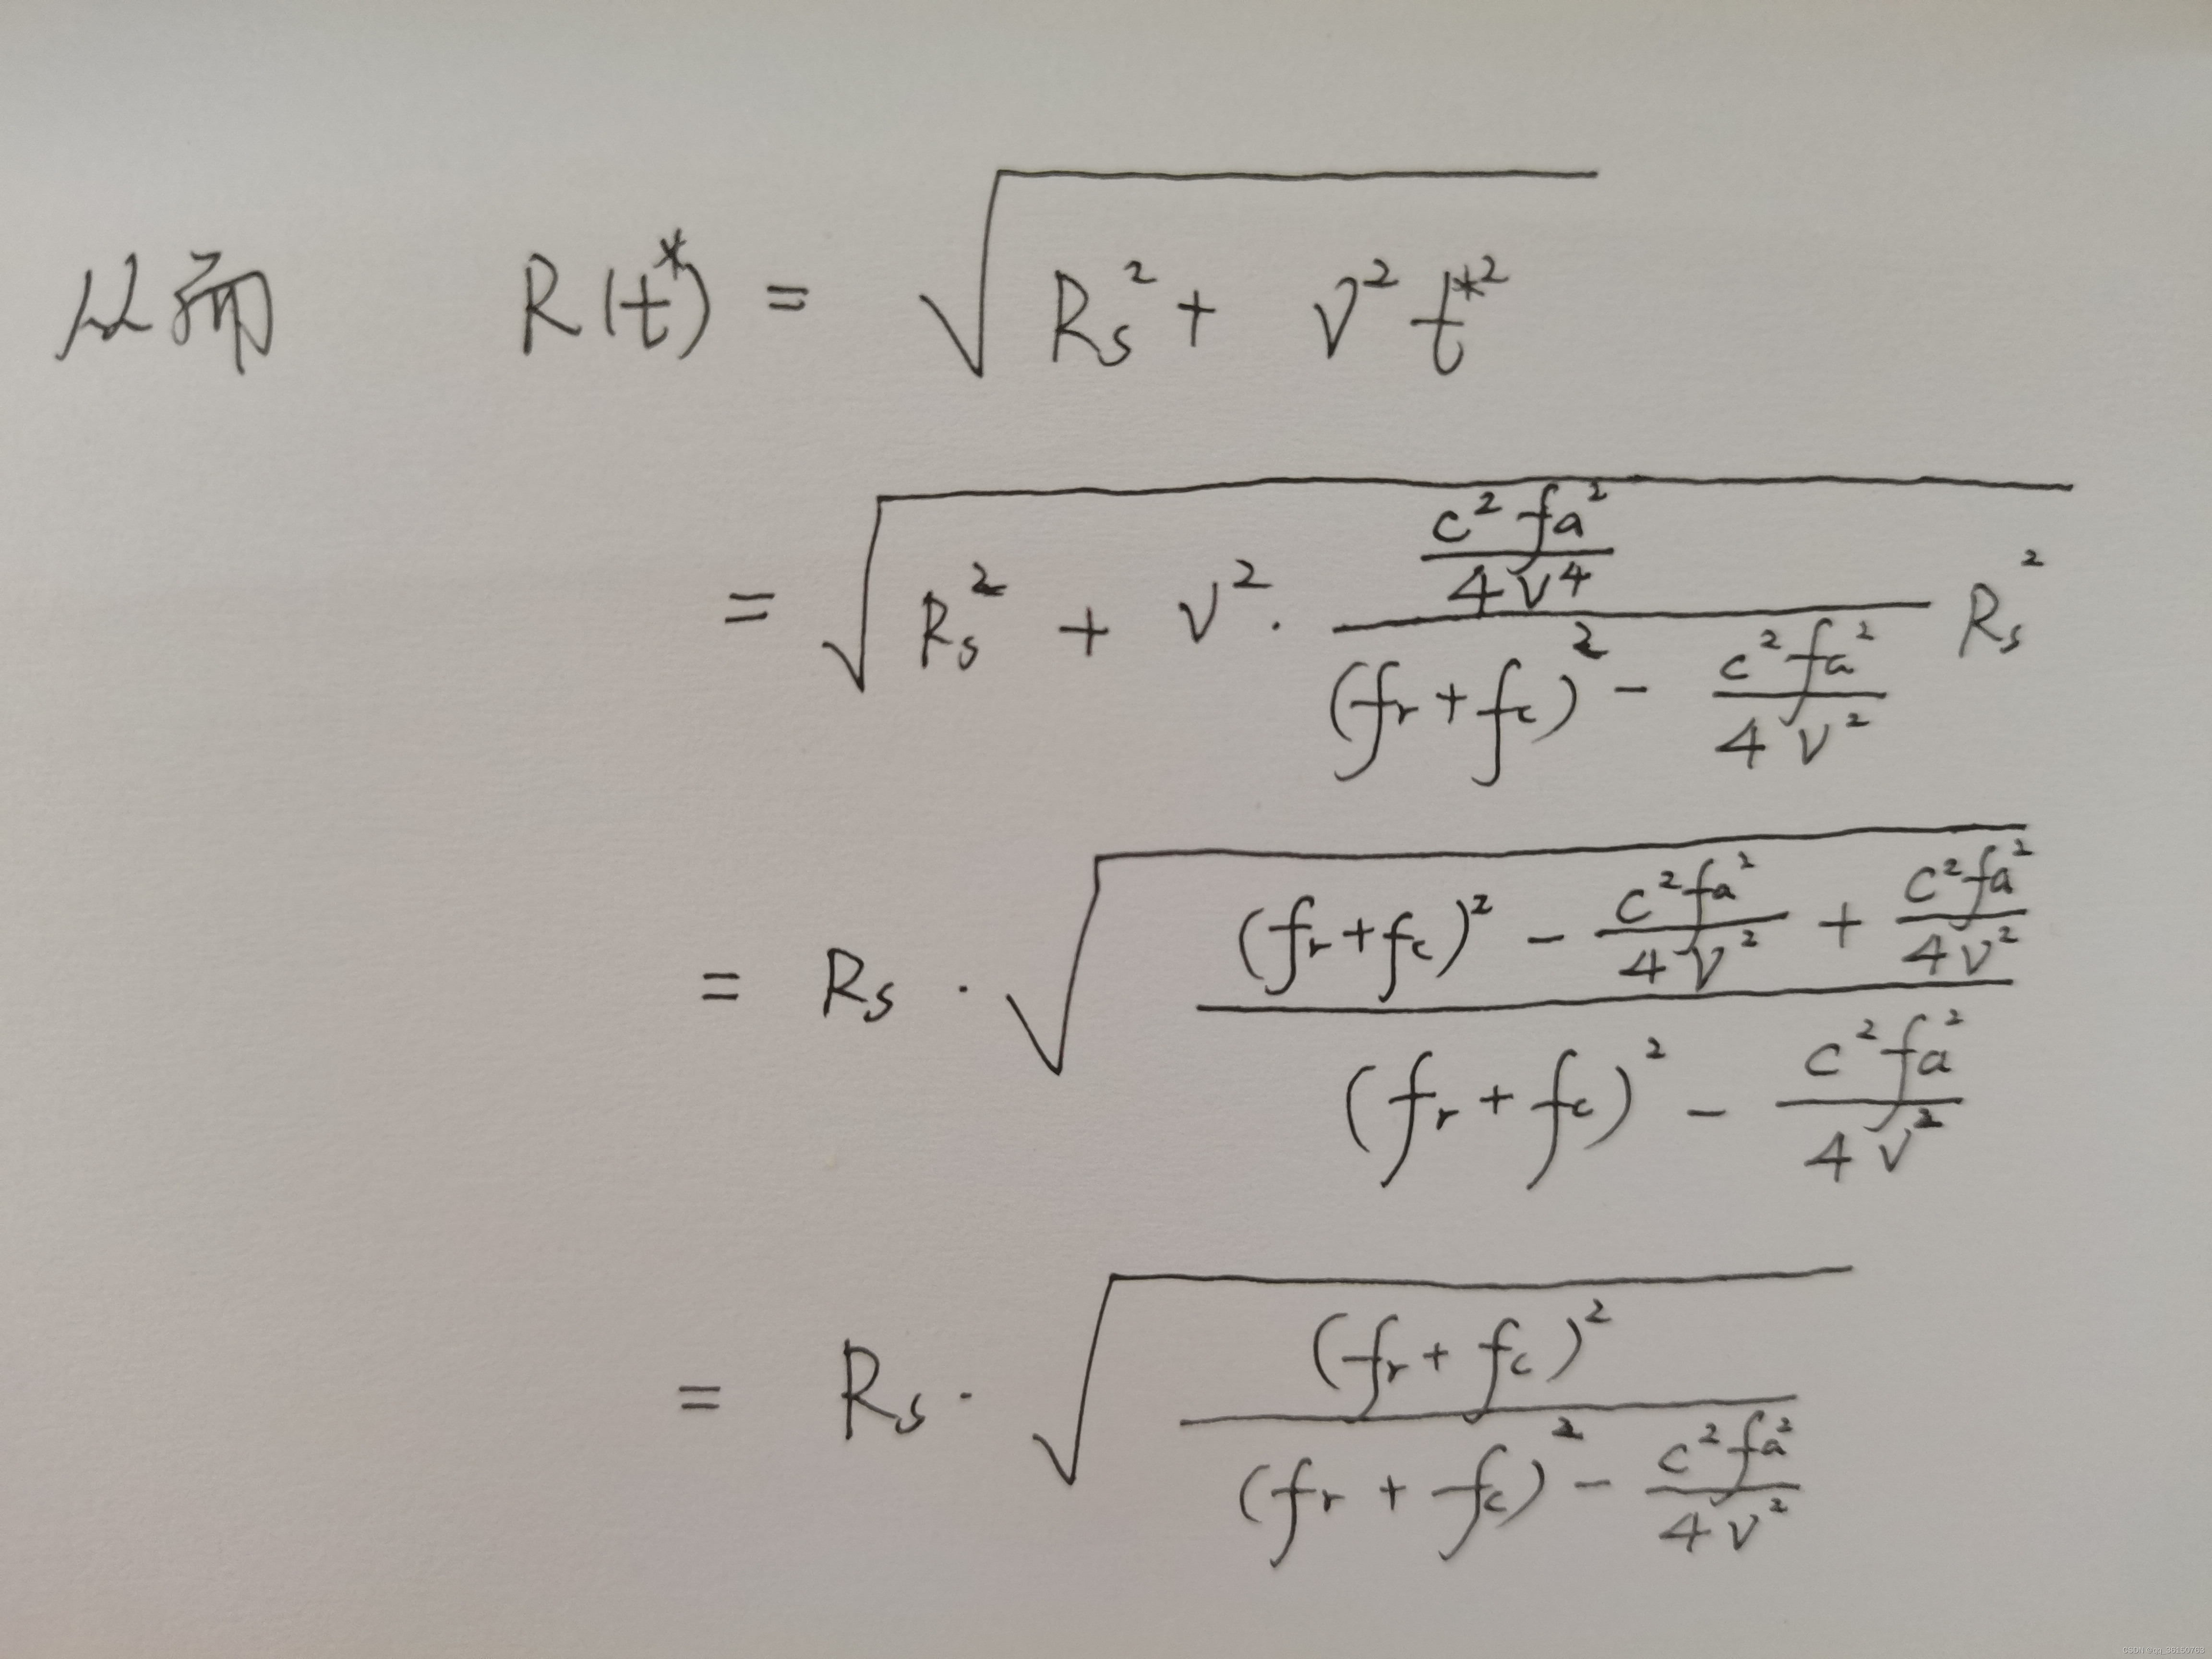 从而 R(t*) = √(Rs² + V² t*²)
= √(Rs² + V² · (c² fa² / 4V⁴) / ((fr + fc)² − c² fa² / 4V²) Rs²)
= Rs · √(((fr + fc)² − c² fa² / 4V² + c² fa² / 4V²) / ((fr + fc)² − c² fa² / 4V²))
= Rs · √((fr + fc)² / ((fr + fc)² − c² fa² / 4V²))